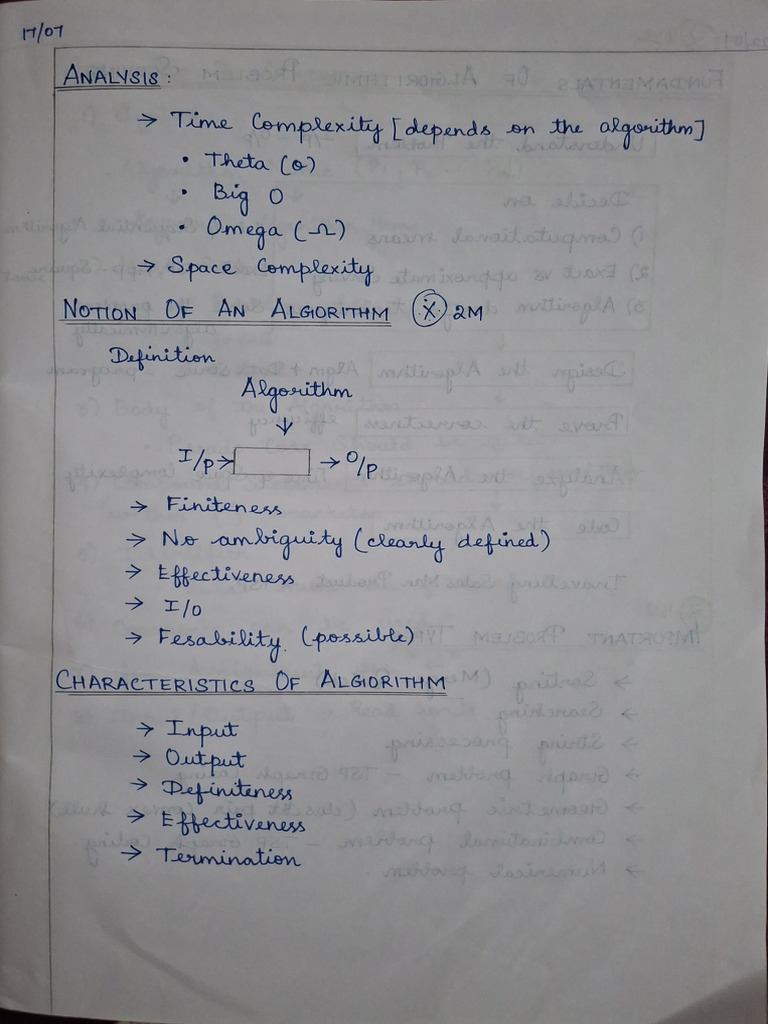 17/07
ANALYSIS:
→ Time Complexity [depends on the algorithm]
• Theta (θ)
• Big O
• Omega (Ω)
→ Space Complexity
NOTION OF AN ALGORITHM 2M
Definition
Algorithm
↓
I/p → → O/p
→ Finiteness
→ No ambiguity (clearly defined)
→ Effectiveness
→ I/O
→ Fesability. (possible)
CHARACTERISTICS OF ALGORITHM
→ Input
→ Output
→ Definiteness
→ Effectiveness
→ Termination